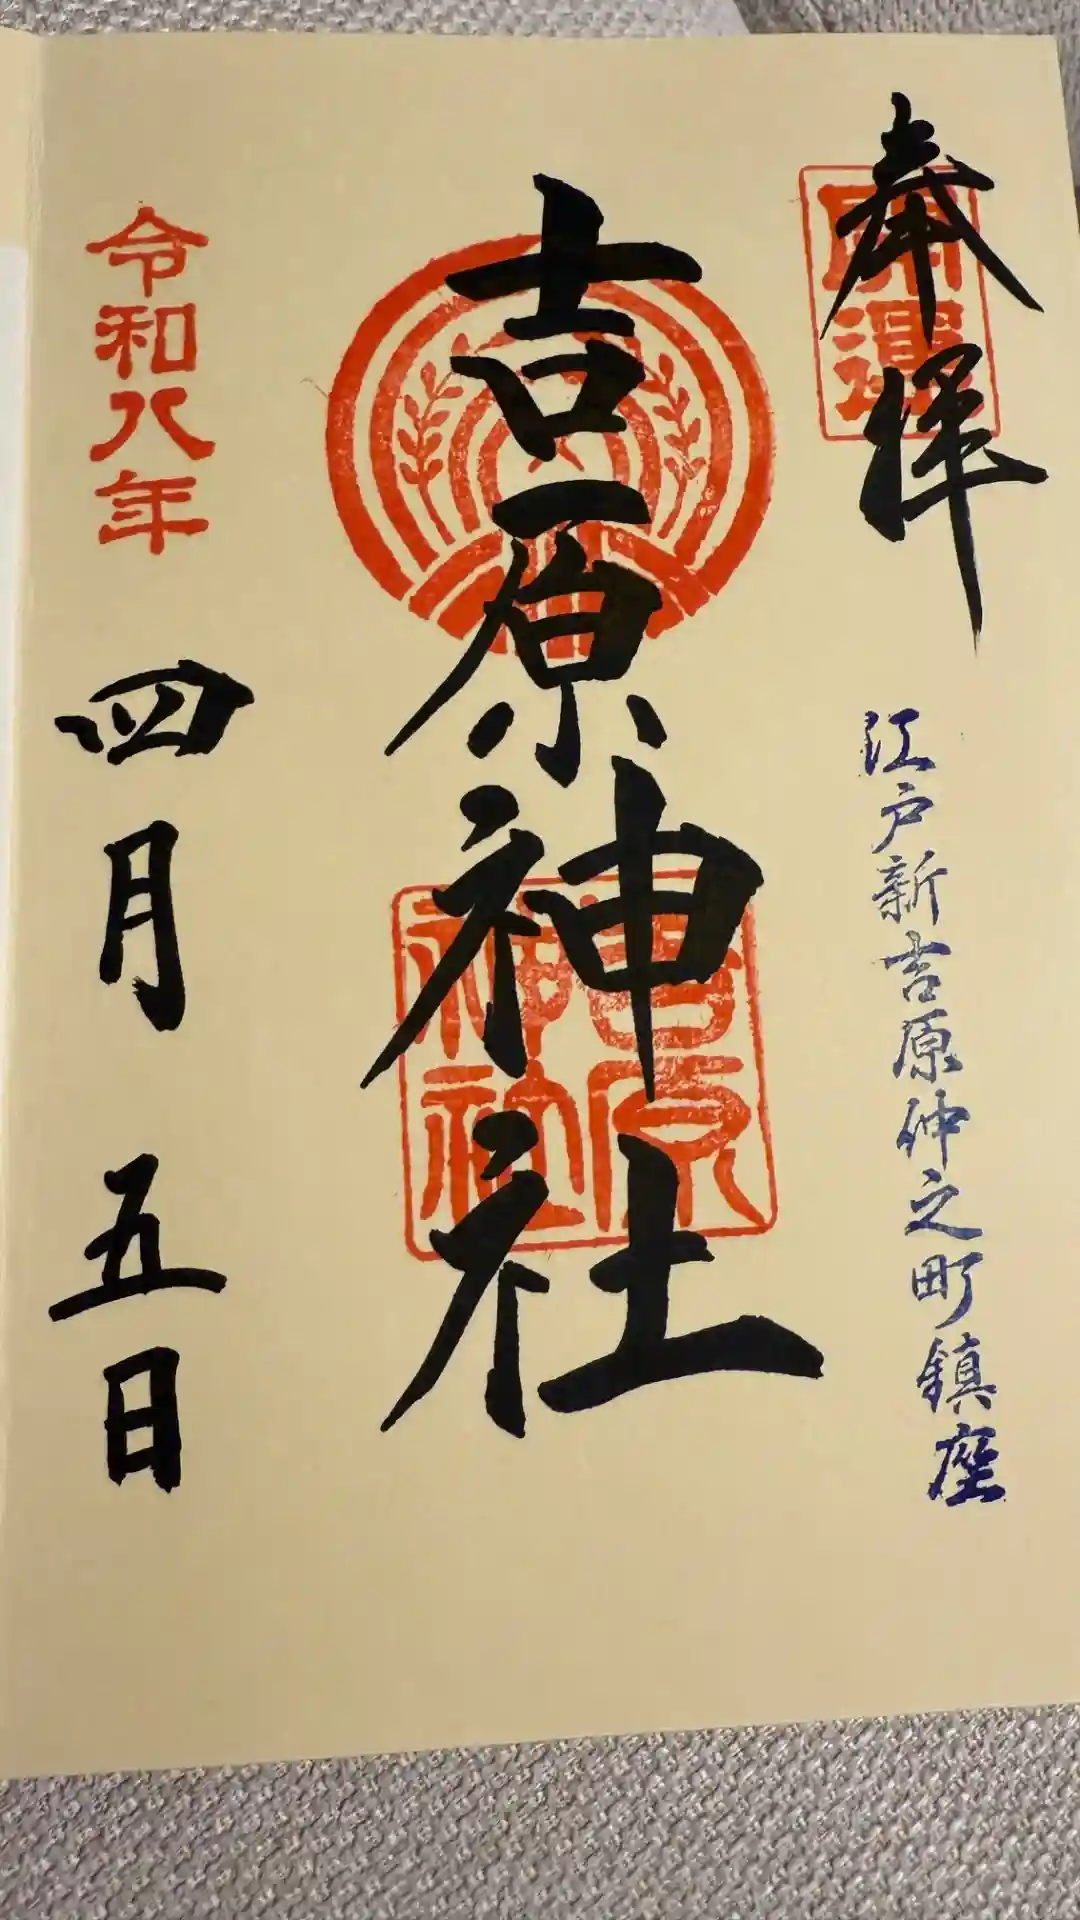 奉拝
開運
江戸新吉原仲之町鎮座
吉原神社
吉原神社
令和八年
四月五日